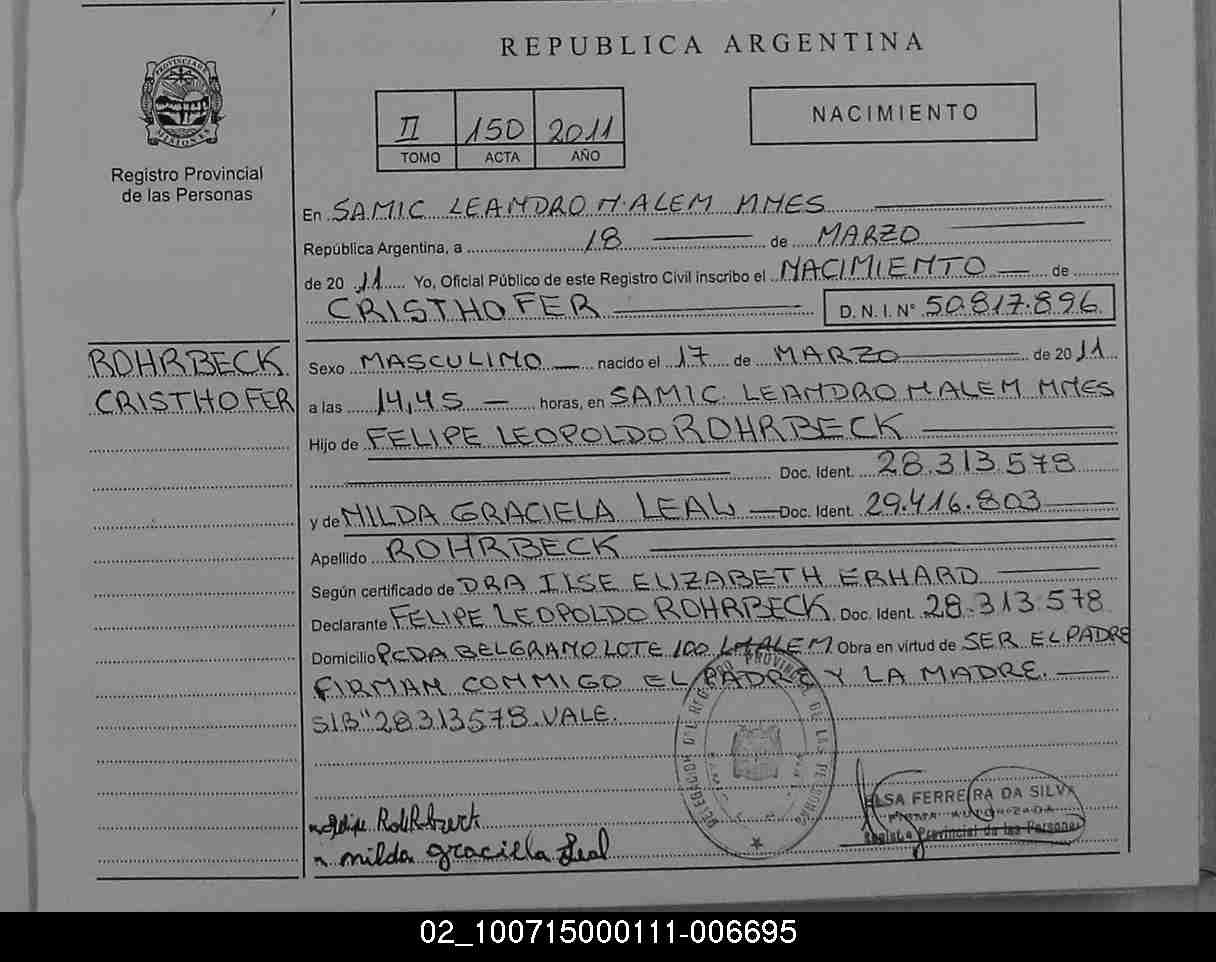 REPUBLICA ARGENTINA
PROVINCIA DE MISIONES
Registro Provincial
de las Personas
II 150 2011
TOMO ACTA AÑO
NACIMIENTO
En SAMIC LEANDRO N. ALEM MNES
República Argentina, a 18 de MARZO
de 20 11 Yo, Oficial Público de este Registro Civil inscribo el NACIMIENTO de
CRISTHOFER D. N. I. N° 50.817.896
ROHRBECK
CRISTHOFER
Sexo MASCULINO nacido el 17 de MARZO de 20 11
a las 14,45 horas, en SAMIC LEANDRO N ALEM MNES
Hijo de FELIPE LEOPOLDO ROHRBECK
Doc. Ident. 28.313.578
y de NILDA GRACIELA LEAL Doc. Ident. 29.416.803
Apellido ROHRBECK
Según certificado de DRA ILSE ELIZABETH ERHARD
Declarante FELIPE LEOPOLDO ROHRBECK Doc. Ident. 28.313 578
Domicilio PCDA BELGRANO LOTE 100 LNALEM Obra en virtud de SER EL PADRE
FIRMAN CONMIGO EL PADRE Y LA MADRE.
S/B "28.313578. VALE.
DELEGACION DEL REGISTRO PROVINCIAL DE LAS PERSONAS
ELSA FERREIRA DA SILVA
FIRMA AUTORIZADA
Registro Provincial de las Personas
Felipe Rohrbeck
nilda graciela Leal
02_100715000111-006695